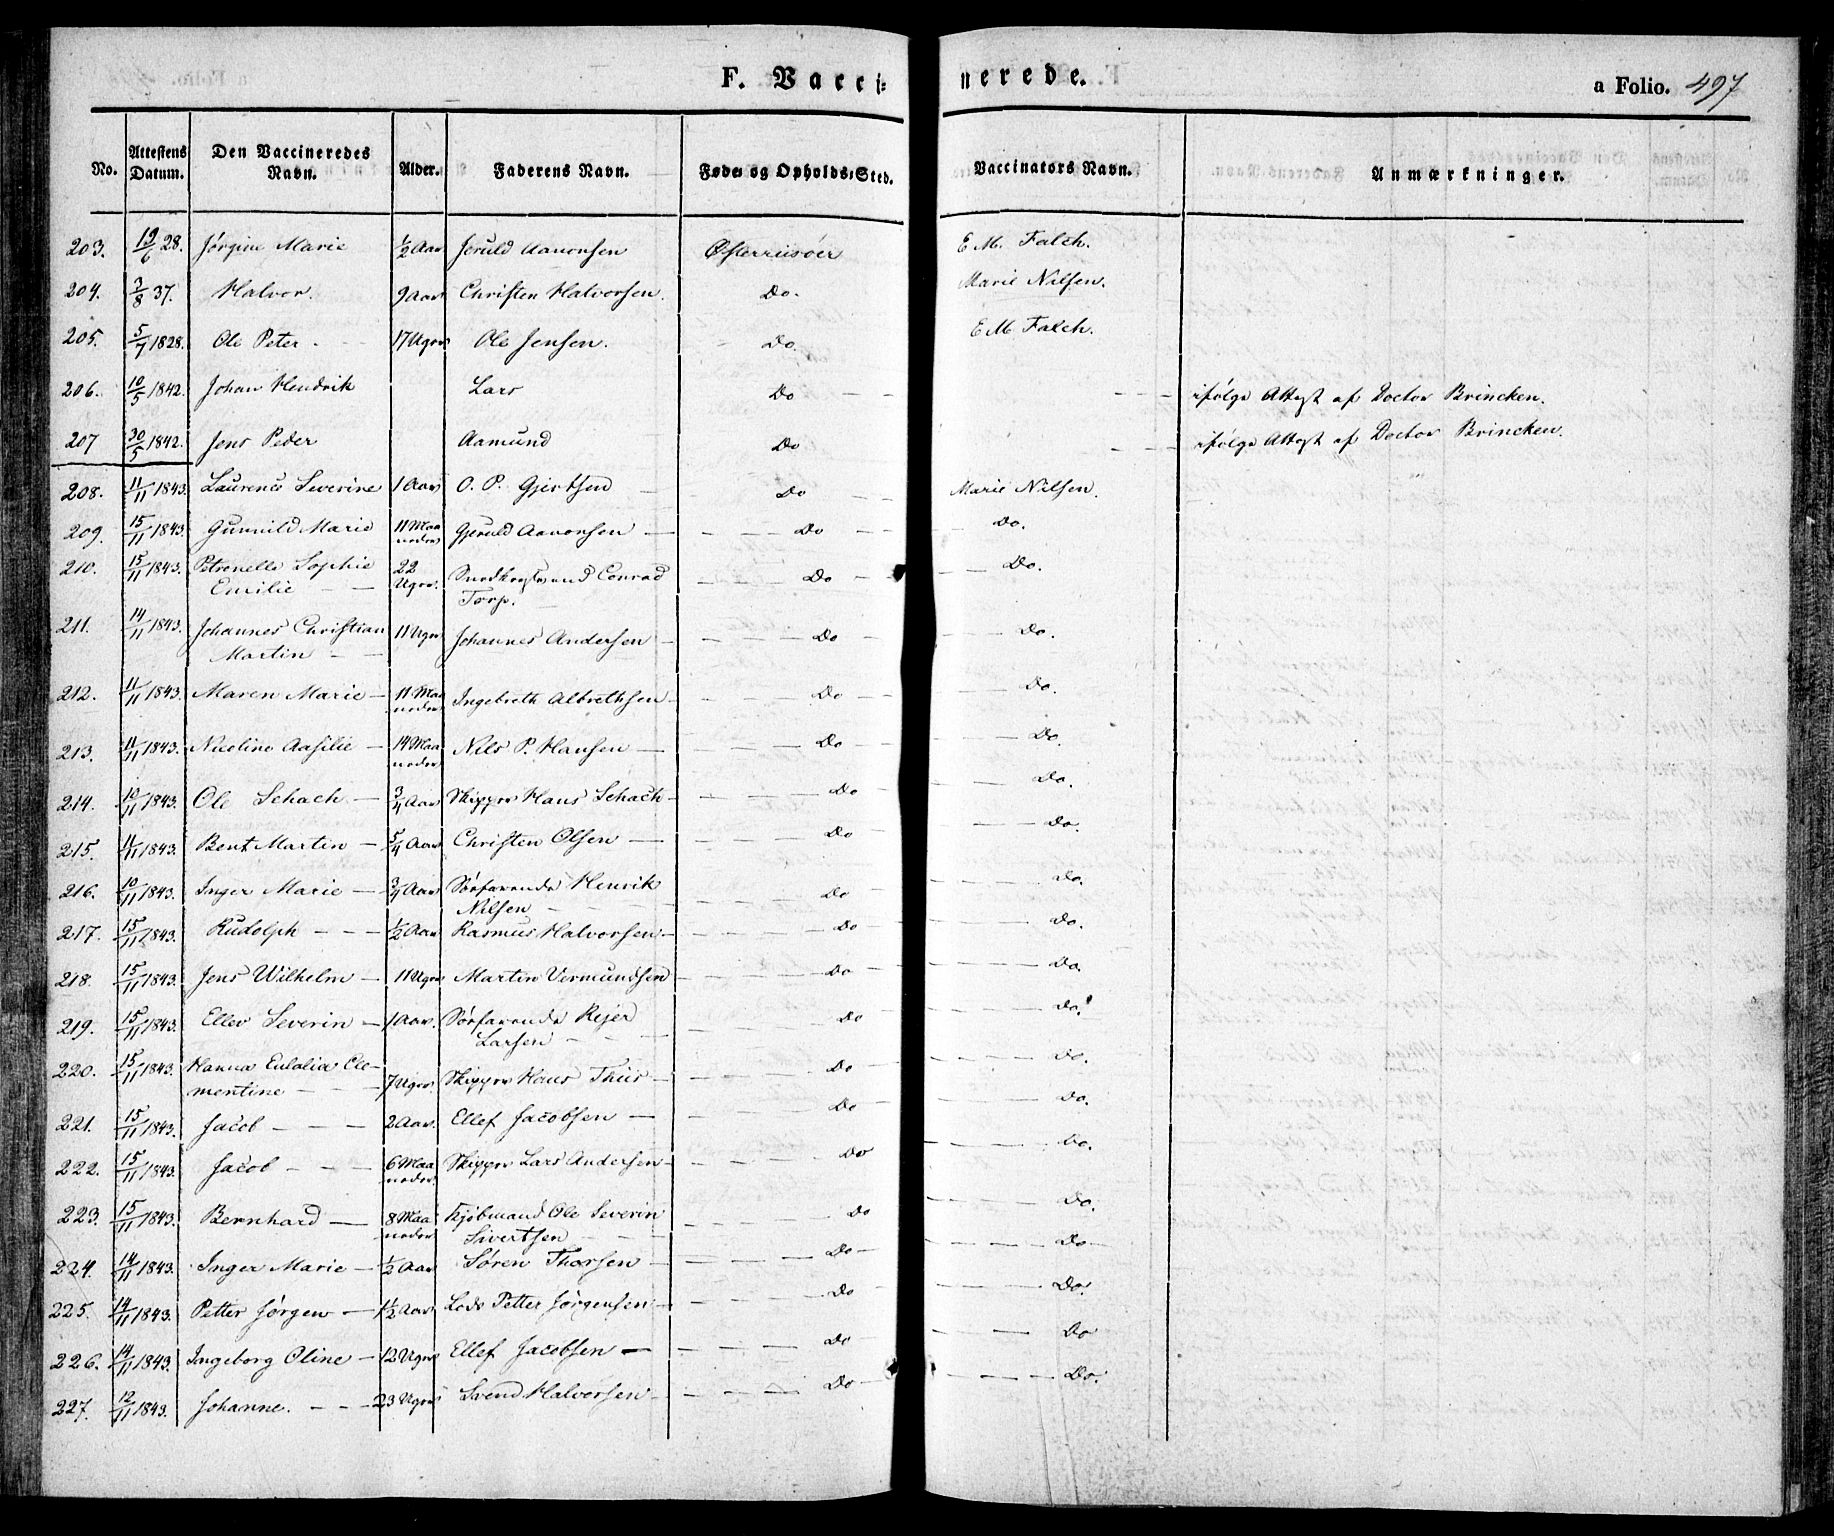 F. Vaccinerede.
a Folio. 497
No. | Attestens Datum. | Den Vaccineredes Navn. | Alder. | Faderens Navn. | Føde- og Opholds-Sted. | Vaccinators Navn. | Anmærkninger.
203. 19/6 28. Jørgine Marie 1/2 Aar Jeruld Aanonsen Østerriisöer E M. Falch.
204. 3/8 37. Halvor. 9 Aar Christen Halvorsen. Do. Marie Nilsen.
205. 5/7 1828. Ole Peter - 17 Uger Ole Jensen. Do. E M. Falch.
206. 10/5 1842. Johan Hendrik Lars Do - - - - - ifølge Attest af Doctor Brincken.
207 30/5 1842. Jens Peder Aamund Do - - ifølge Attest af Doctor Brincken.
208. 11/11 1843. Laurence Severine 1 Aar O. P. Gjertsen - Do - Marie Nilsen.
209. 15/11 1843. Gunnild Marie 11 Maaneder Gjeruld Aanonsen - - - - Do - - Do.
210. 15/11 1843. Petronelle Sophie Emilie - - 22 Uger. Conrad Torp. - - - Do - - Do.
211. 14/11 1843. Johannes Christian Martin - - 11 Uger Johannes Andersen - - - - Do - - - Do.
212. 11/11 1843. Maren Marie - 11 Maaneder Ingebreth Albrethsen - - - - Do - - - Do.
213. 11/11 1843. Nicoline Aasilie - 14 Maaneder Nils P. Hansen - - - - Do - - - Do.
214. 10/11 1843. Ole Schach - 3/4 Aar Skipper Hans Schach - - - - Do - - - Do.
215. 11/11 1843. Bent Martin - 5/4 Aar Christen Olsen - - - - Do - - - Do.
216. 10/11 1843. Inger Marie - 3/4 Aar Søefarende Henrik Nilsen - - - - - Do - - - Do.
217. 15/11 1843. Rudolph - - - 1/2 Aar Rasmus Halvorsen - - - - Do - - - Do.
218. 15/11 1843. Jens Wilhelm - 11 Uger Martin Vermundsen - - - Do - - - Do.
219. 15/11 1843. Ellev Severin - 1 Aar. Søefarende Rejer Larsen - - - - - Do - - - Do.
220. 15/11 1843. Hanna Eulalia Clementine - - 7 Uger. Skipper Hans Thiis - - - - Do - - - Do.
221. 15/11 1843. Jacob - - - 2 Aar. Ellef Jacobsen - - - - Do - - - Do.
222. 15/11 1843. Jacob - - - 6 Maaneder Skipper Lars Andersen - - - - Do - - - Do.
223. 15/11 1843. Bernhard - 8 Maaneder Kjøbmand Ole Severin Sivertsen - - - - - Do - - - Do.
224. 14/11 1843. Inger Marie - 1/2 Aar Søren Thorsen - - - - Do - - - - Do -
225. 14/11 1843. Petter Jørgen - 1 1/2 Aar Lods Petter Jørgensen - - - - Do - - - Do.
226. 14/11 1843. Ingeborg Oline - 12 Uger Ellef Jacobsen - - - - Do - - - Do
227. 12/11 1843. Johanne. - - - 23 Uger Svend Halvorsen - - - - Do - - - - Do.